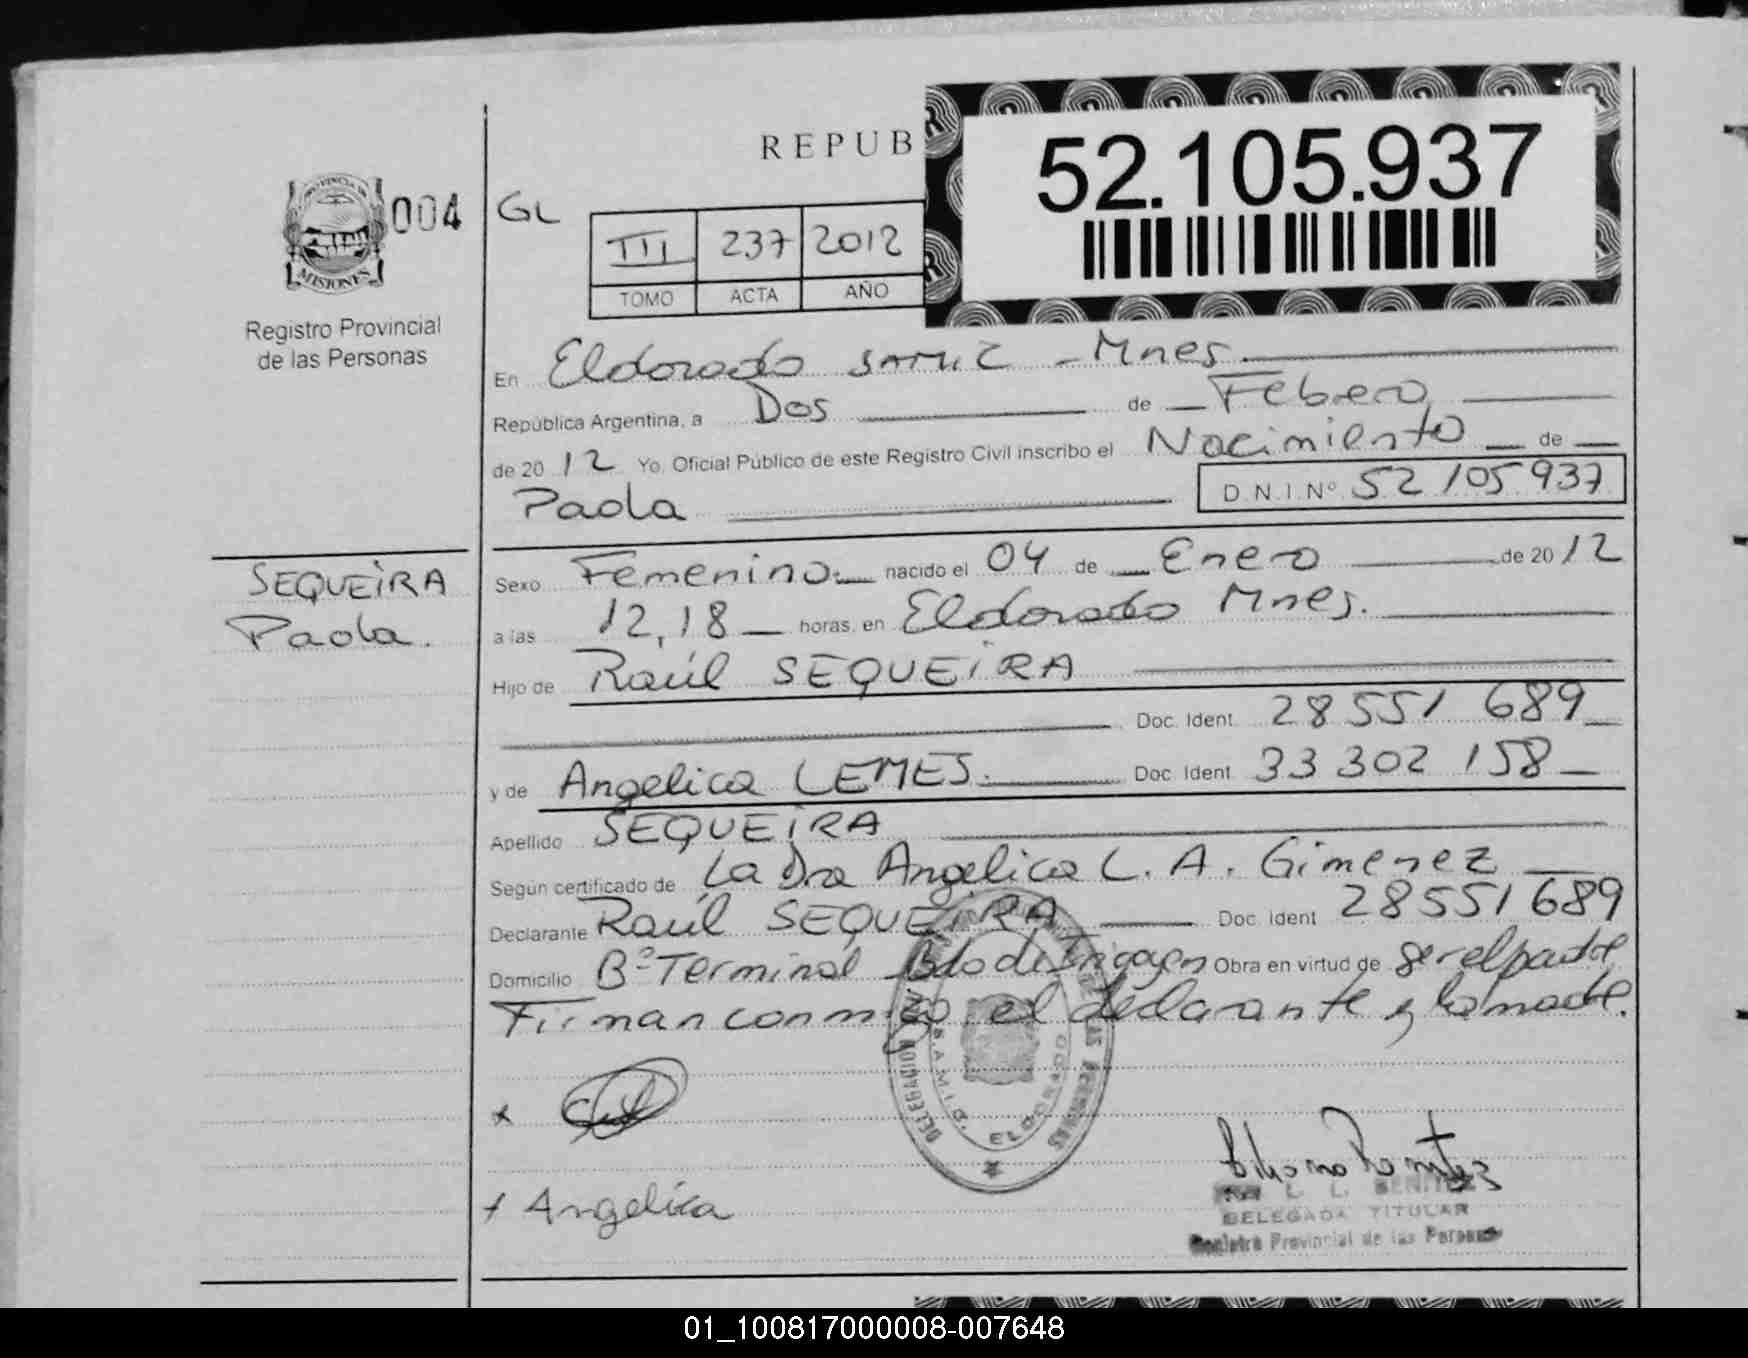 REPUB
52.105.937
PROVINCIA DE
MISIONES
004
GL
III 237 2012
TOMO ACTA AÑO
Registro Provincial
de las Personas
En Eldorado SAMIC - Mnes.
República Argentina, a Dos de Febrero
de 2012 Yo, Oficial Público de este Registro Civil inscribo el Nacimiento de
Paola D.N.I.Nº 52 105 937
SEQUEIRA
Paola.
Sexo Femenino. nacido el 04 de Enero de 2012
a las 12,18 horas, en Eldorado Mnes.
Hijo de Raúl SEQUEIRA
Doc. Ident. 28 551 689
y de Angelica LEMES. Doc. Ident. 33 302 158
Apellido SEQUEIRA
Según certificado de La Dra Angelica L. A. Gimenez
Declarante Raúl SEQUEIRA Doc. Ident 28551689
Domicilio Bº Terminal Bdo de Irigoyen Obra en virtud de ser el padre
Firman conmigo el declarante y la madre.
DELEGACION
LAS PERSONAS
S.A.M.I.C. ELDORADO
x
x Angelica
L. L. BENITEZ
DELEGADA TITULAR
Registro Provincial de las Personas
01_100817000008-007648